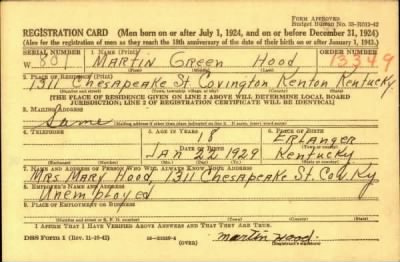 FORM APPROVED
Budget Bureau No. 33-R012-42
REGISTRATION CARD (Men born on or after July 1, 1924, and on or before December 31, 1924)
(Also for the registration of men as they reach the 18th anniversary of the date of their birth on or after January 1, 1943.)
SERIAL NUMBER 1. NAME (Print) ORDER NUMBER
W 801 MARTIN Green Hood 13349
(First) (Middle) (Last)
2. PLACE OF RESIDENCE (Print)
1311 Chesapeake St. Covington Kenton Kentucky
(Number and street) (Town, township, village, or city) (County) (State)
[THE PLACE OF RESIDENCE GIVEN ON LINE 2 ABOVE WILL DETERMINE LOCAL BOARD
JURISDICTION; LINE 2 OF REGISTRATION CERTIFICATE WILL BE IDENTICAL]
3. MAILING ADDRESS
Same
4. TELEPHONE 5. AGE IN YEARS 6. PLACE OF BIRTH
18 Erlanger
DATE OF BIRTH
JAN 22 1929 Kentucky
7. NAME AND ADDRESS OF PERSON WHO WILL ALWAYS KNOW YOUR ADDRESS
Mrs. Mary Hood, 1311 Chesapeake St. Cov. Ky
8. EMPLOYER'S NAME AND ADDRESS
Unemployed
9. PLACE OF EMPLOYMENT OR BUSINESS
(Number and street or R. F. D. number) (Town) (County) (State)
I AFFIRM THAT I HAVE VERIFIED ABOVE ANSWERS AND THAT THEY ARE TRUE.
DSS Form 1 (Rev. 11-16-42) (OVER) Martin Hood
(Registrant's signature)